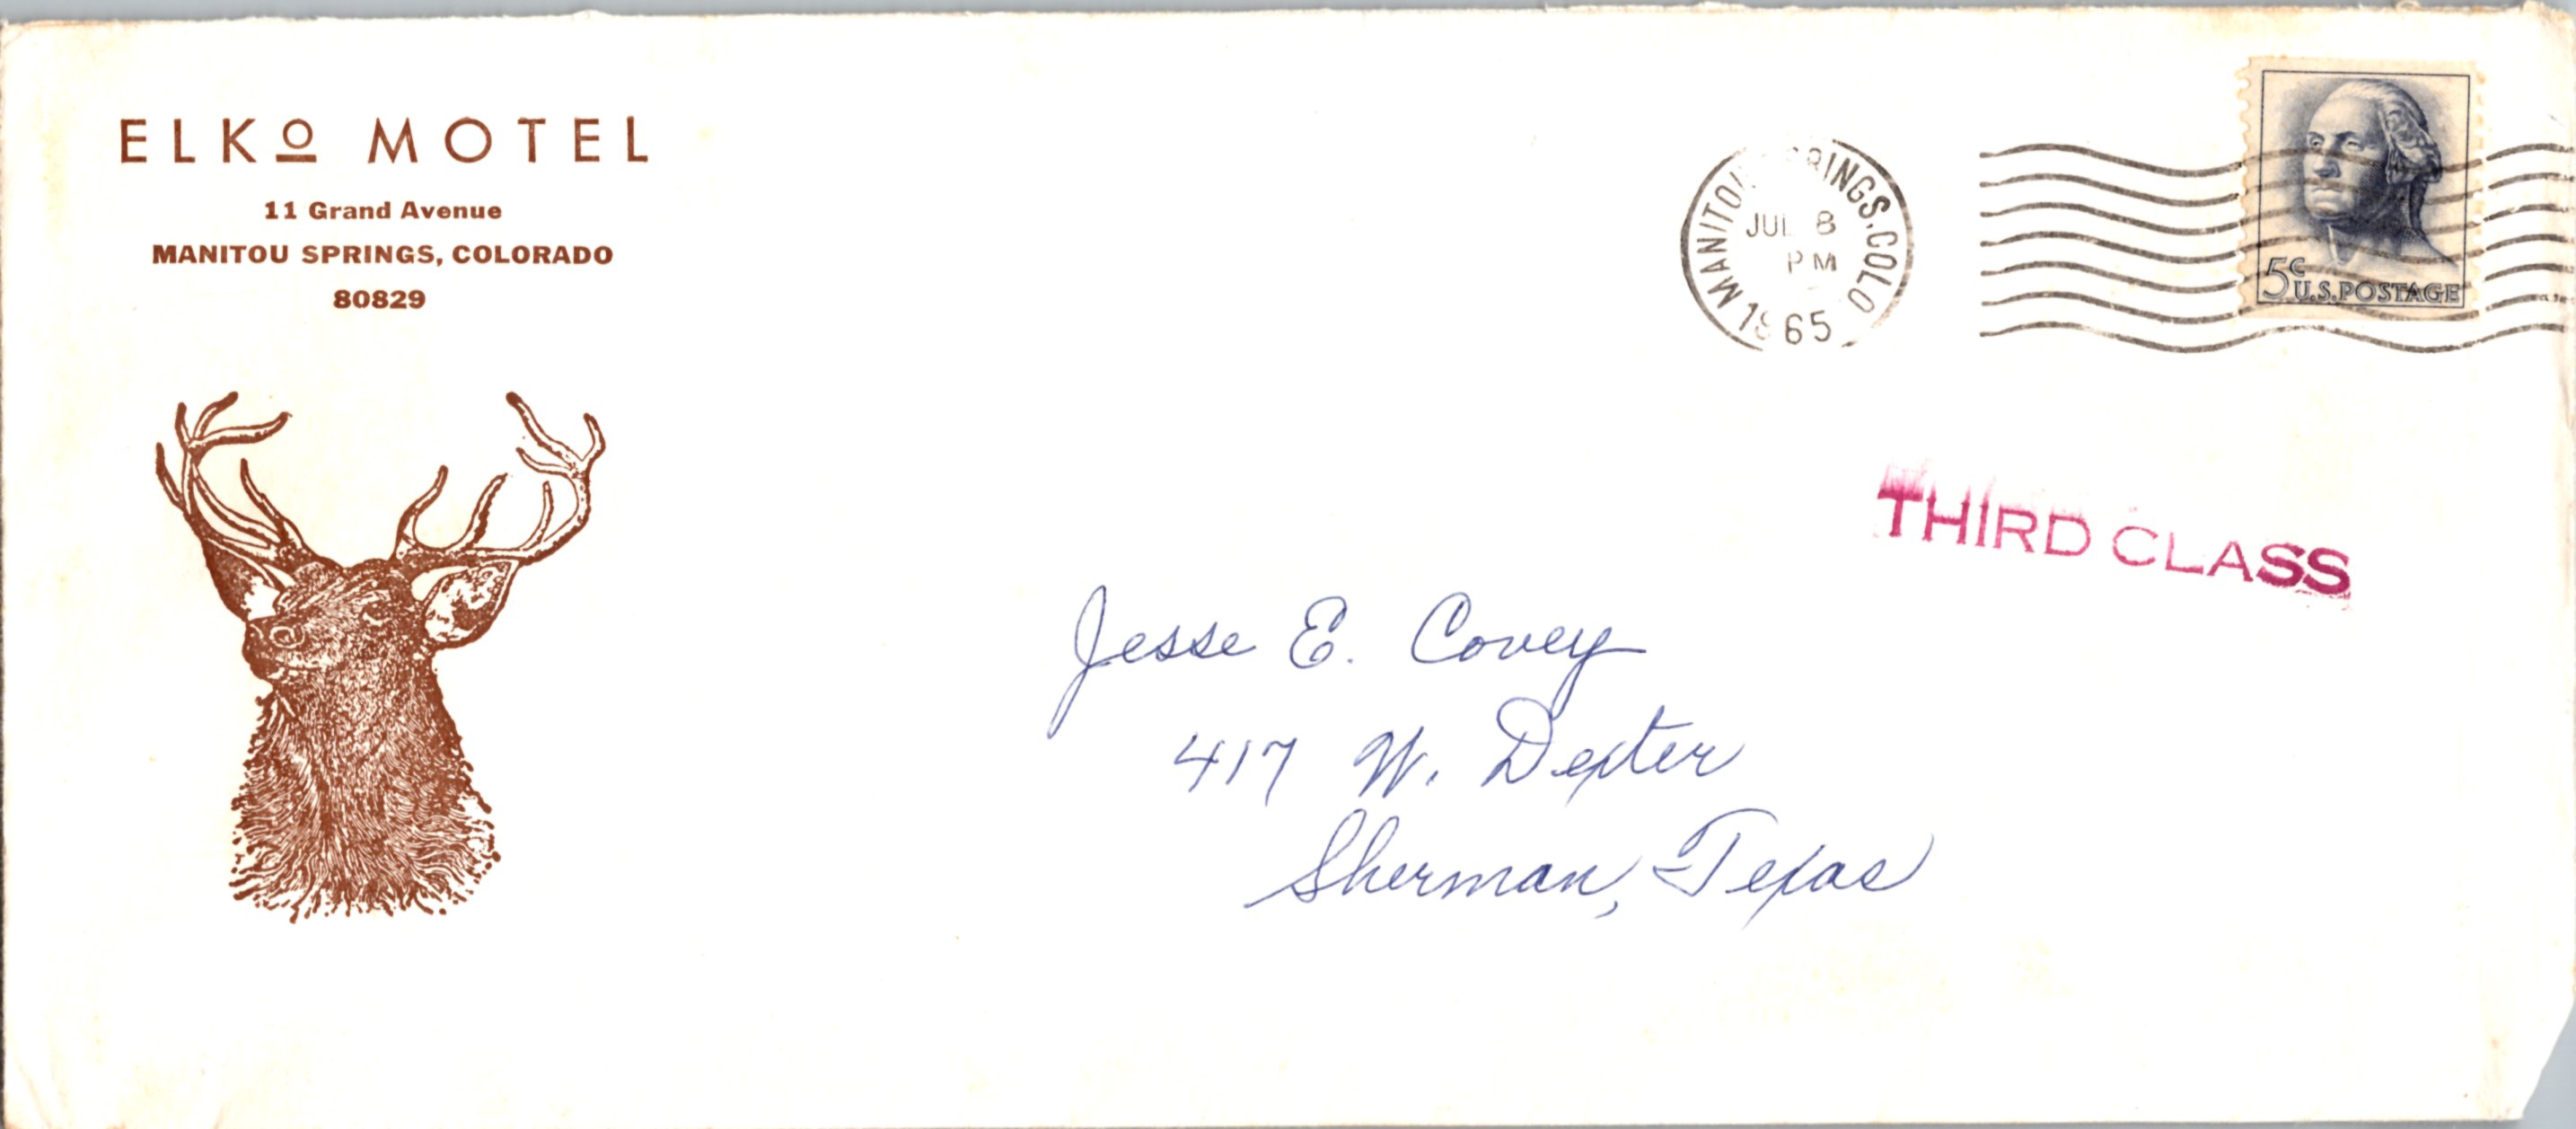 ELKO MOTEL
11 Grand Avenue
MANITOU SPRINGS, COLORADO
80829
MANITOU SPRINGS, COLO
JUL 8
PM
1965
5c
U.S. POSTAGE
THIRD CLASS
Jesse E. Covey
417 W. Dexter
Sherman, Texas